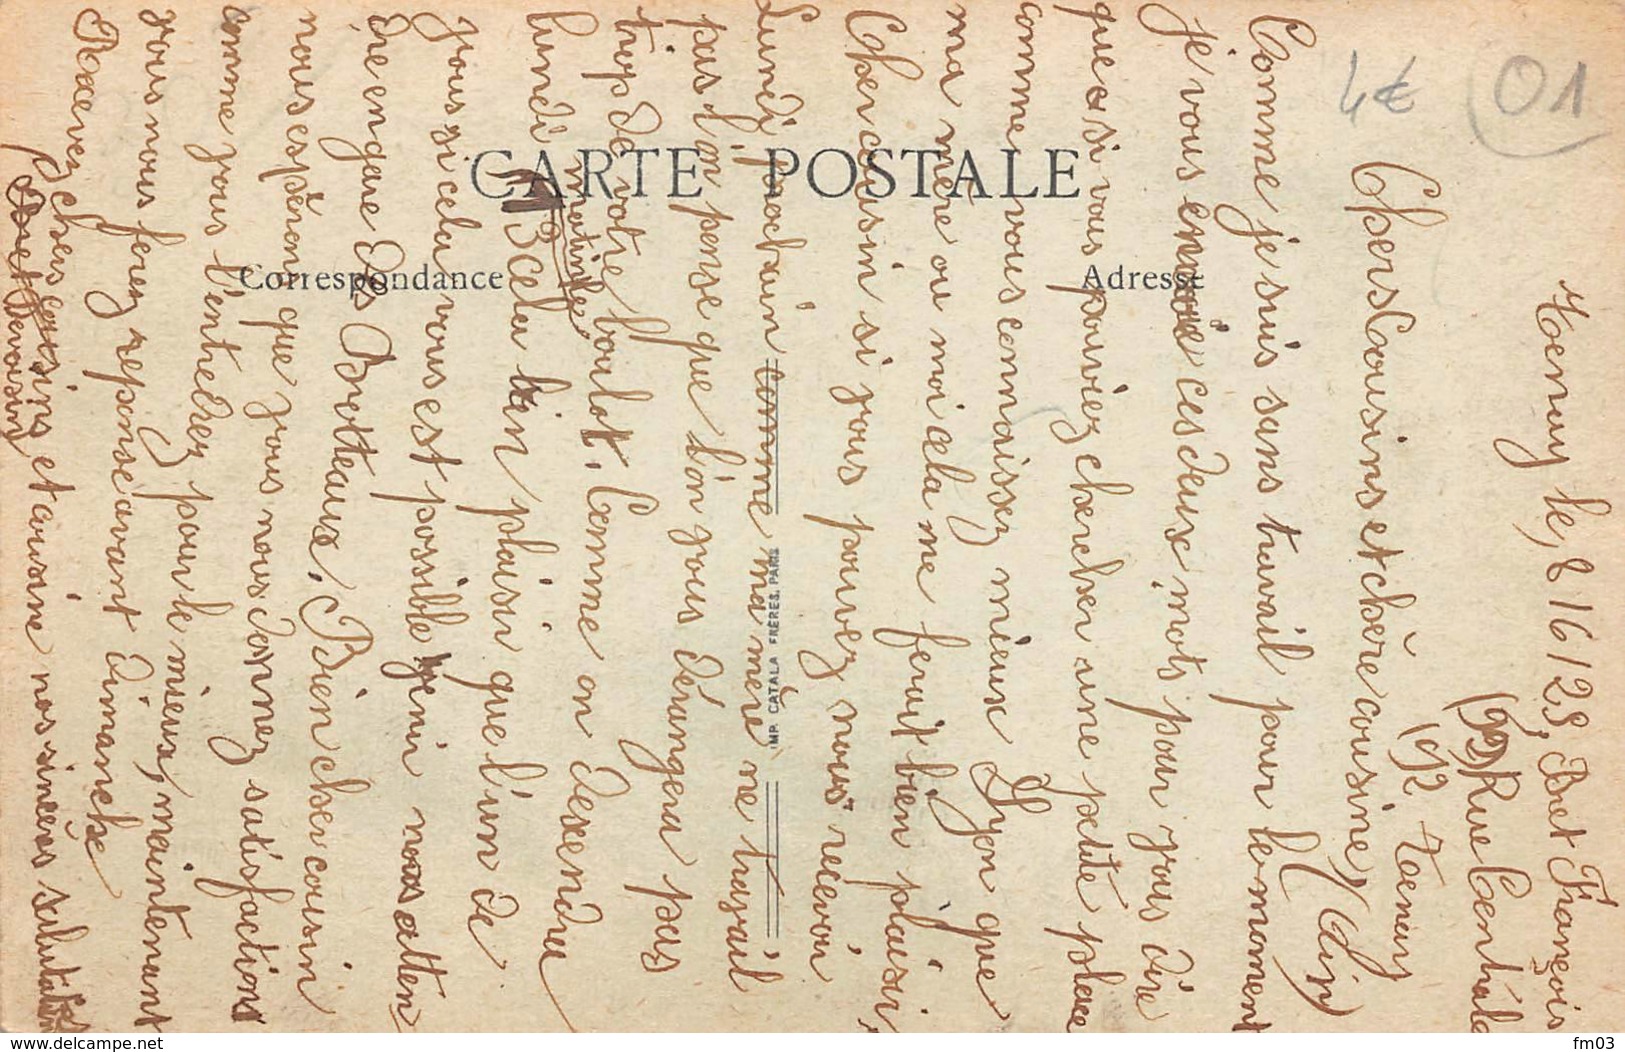 Tenay le, 8/6/28, Buet Françóis
(99 Rue Centrale
192 Tenay
Chers Cousins et chère cousine, (Ain)
Comme je suis sans travail pour le moment
je vous envoie ces deux mots pour vous dire
que si vous pouviez chercher une petite place
comme vous connaissez mieux Lyon que
ma mère ou moi cela me ferait bien plaisir,
Cher cousin si vous pouvez nous recevoir
Lundi prochain comme ma mère ne travail
pas l'on pense que l'on vous dérangera pas
trop de votre boulot. Comme on descendra
lundi matin les 13 cela bien plaisir que l'un de
vous si cela vous est possible venir nous atten
dre en gare des Brotteaux. Bien cher cousin
nous espérions que vous nous donnez satisfactions
comme vous l'entendez pour le mieux, maintenant
vous nous ferez reponse avant dimanche
Recevez chers cousins et cousine nos sincères salutations
CARTE POSTALE
Correspondance
Adresse
IMP. CATALA FRÈRES, PARIS
4€
01
www.delcampe.net
fm03